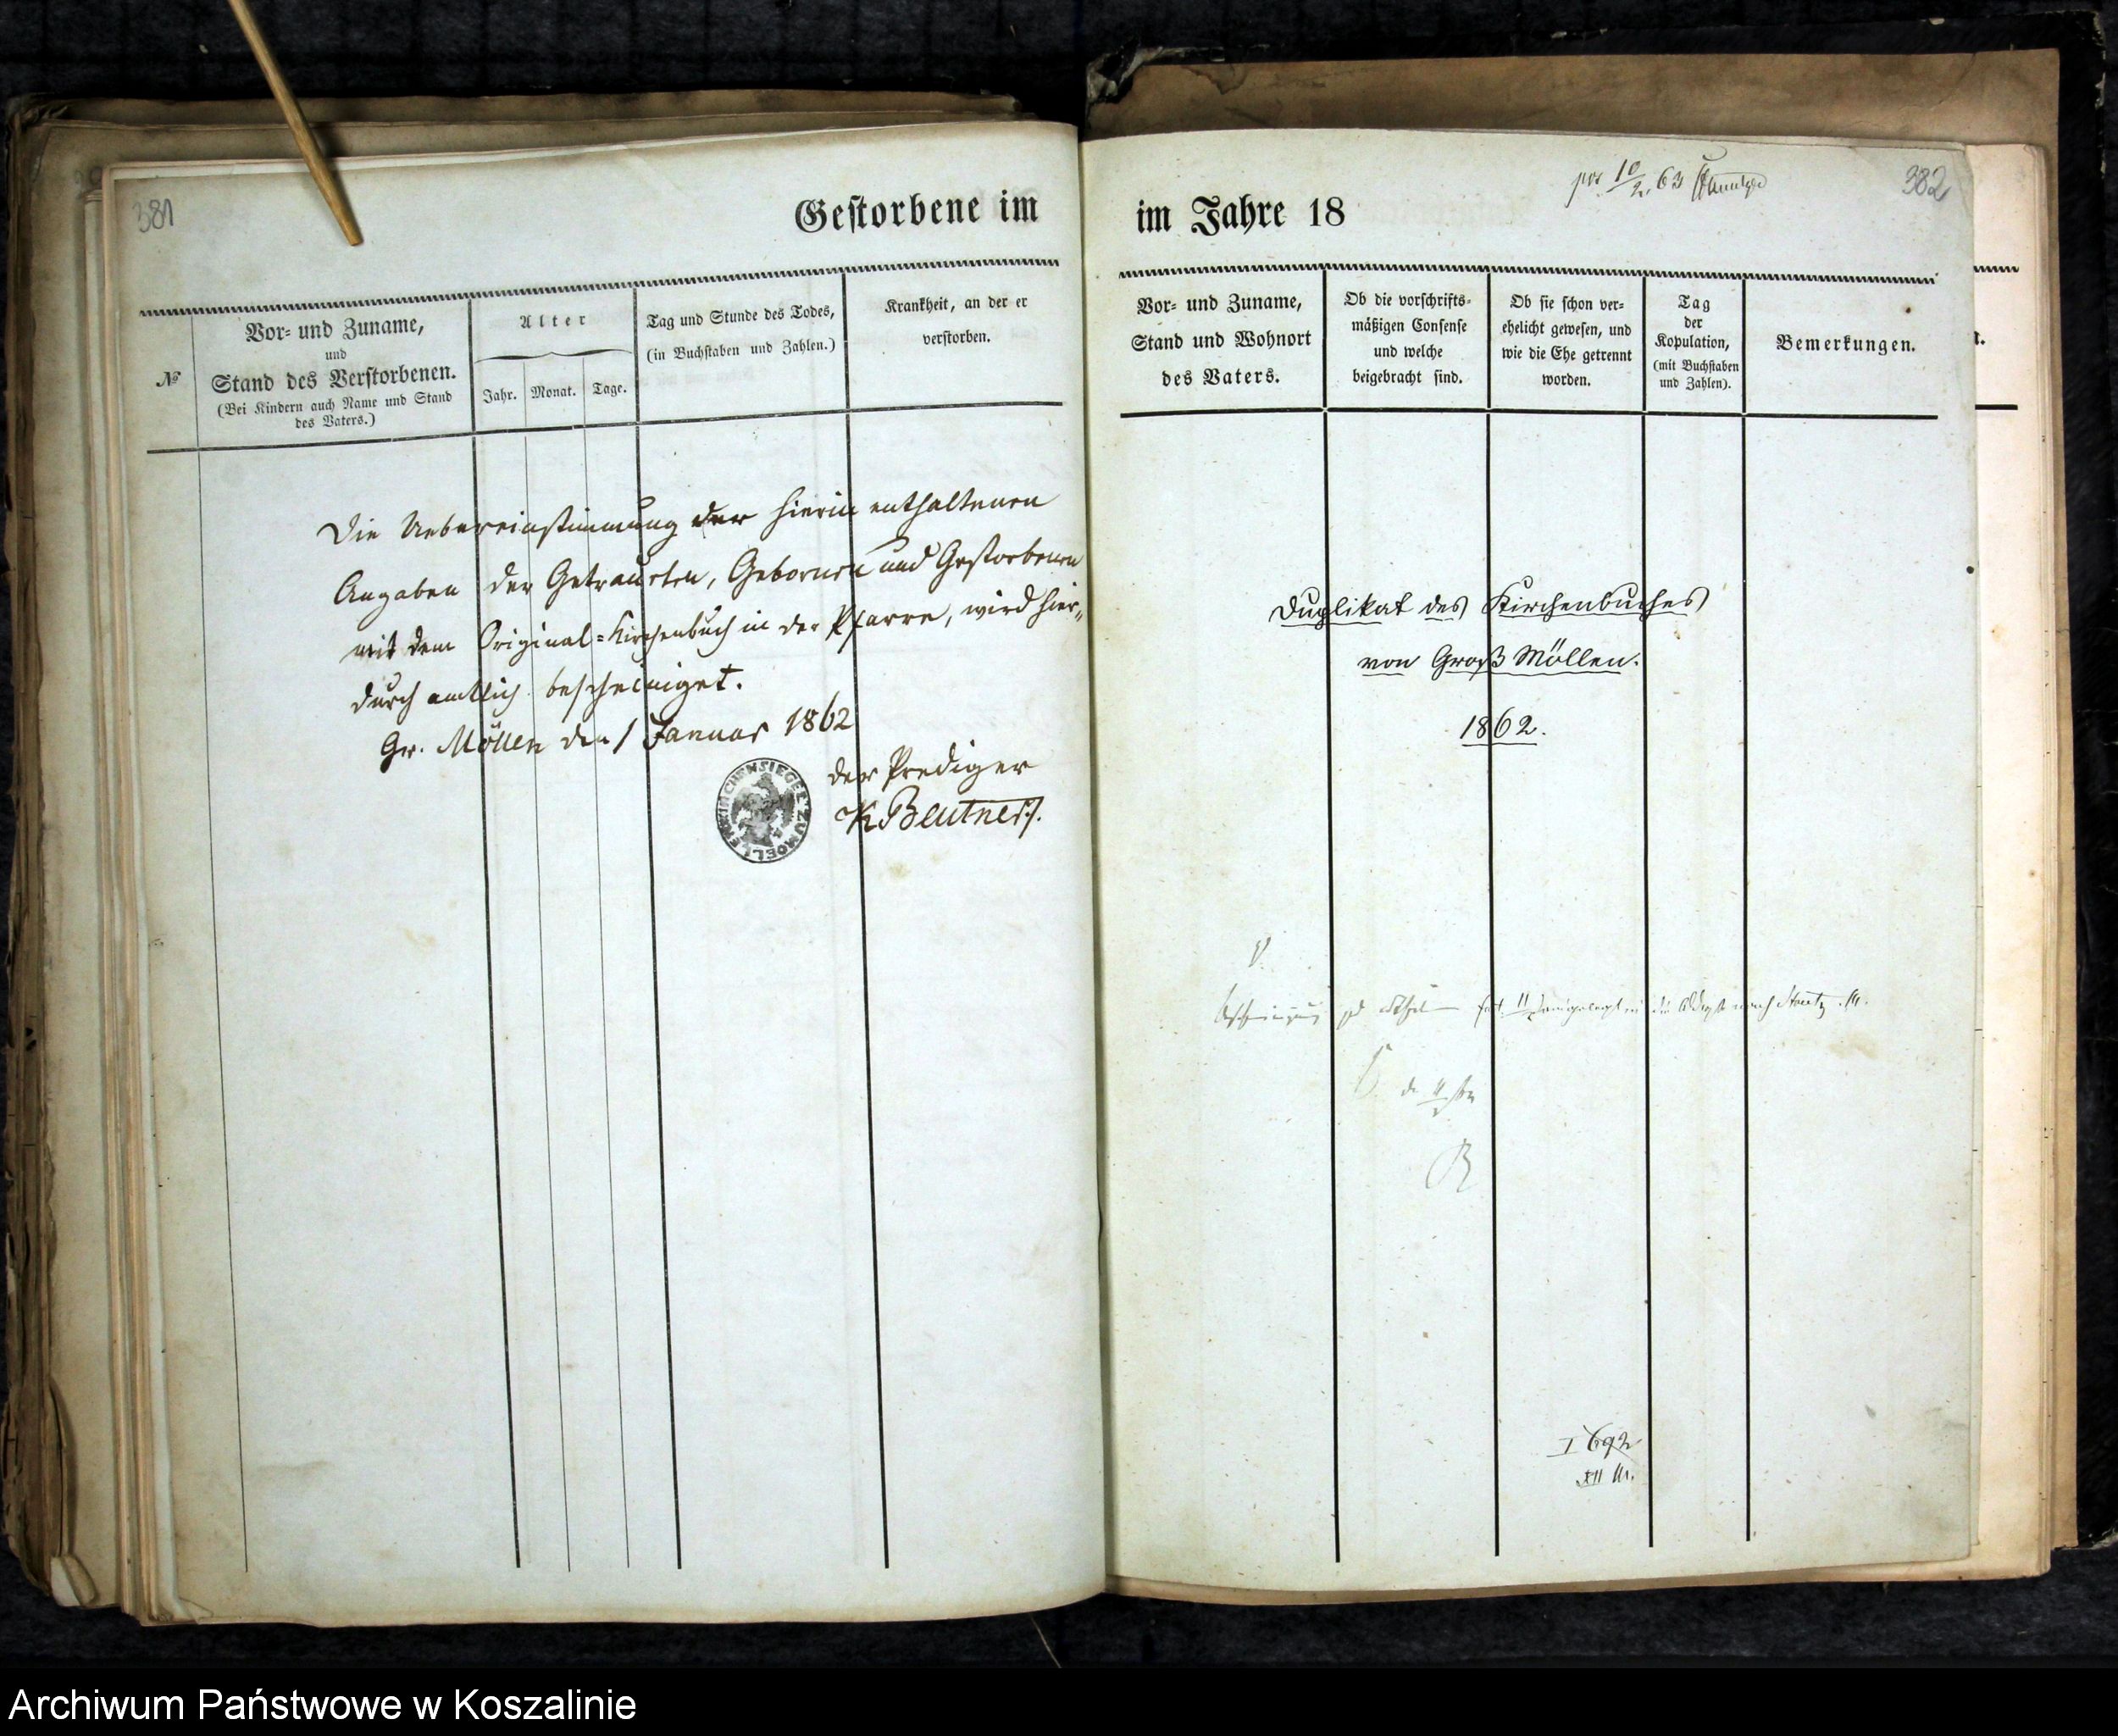 381
Gestorbene im
№
Vor- und Zuname,
und
Stand des Verstorbenen.
(Bei Kindern auch Name und Stand
des Vaters.)
Alter
Jahr. Monat. Tage.
Tag und Stunde des Todes,
(in Buchstaben und Zahlen.)
Krankheit, an der er
verstorben.
Die Uebereinstimmung der hierin enthaltenen
Angaben der Getrauten, Gebornen und Gestorbenen
mit dem Original-Kirchenbuch in der Pfarre, wird hier-
durch amtlich bescheiniget.
Gr. Möllen den 1 Januar 1862
der Prediger
K Beutner
KIRCHENSIEGEL ZU MOELLEN
382
10/2. 63
im Jahre 18
Vor- und Zuname,
Stand und Wohnort
des Vaters.
Ob die vorschrifts-
mäßigen Consense
und welche
beigebracht sind.
Ob sie schon ver-
ehelicht gewesen, und
wie die Ehe getrennt
worden.
Tag
der
Kopulation,
(mit Buchstaben
und Zahlen).
Bemerkungen.
Duplikat des Kirchenbuches
von Groß Möllen.
1862.
I 692
XII
Archiwum Państwowe w Koszalinie